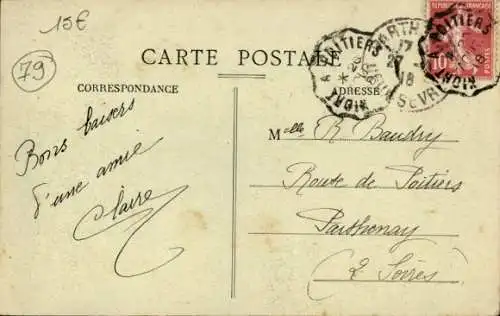 15€
79
CARTE POSTALE
CORRESPONDANCE
ADRESSE
RÉPUBLIQUE FRANÇAISE
10
POITIERS
NIORT
17
27
18
SEVRES
POITIERS
NIORT
Bons baisers
d'une amie
Claire
Melle R Baudry
Route de Poitiers
Parthenay
(2 Sèvres)